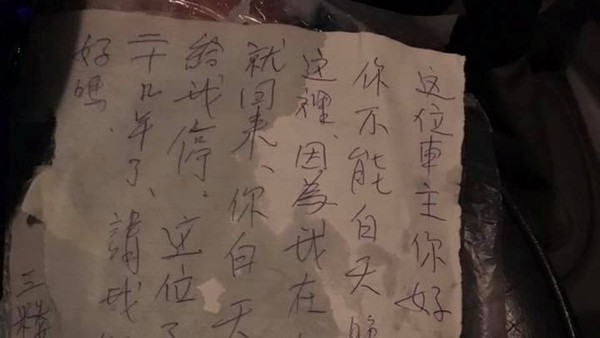 这位車主你好
你不能白天
这裡、因為我在
就回来、你白天
給我停、这位
二十几年了、請
好嗎、
三楼